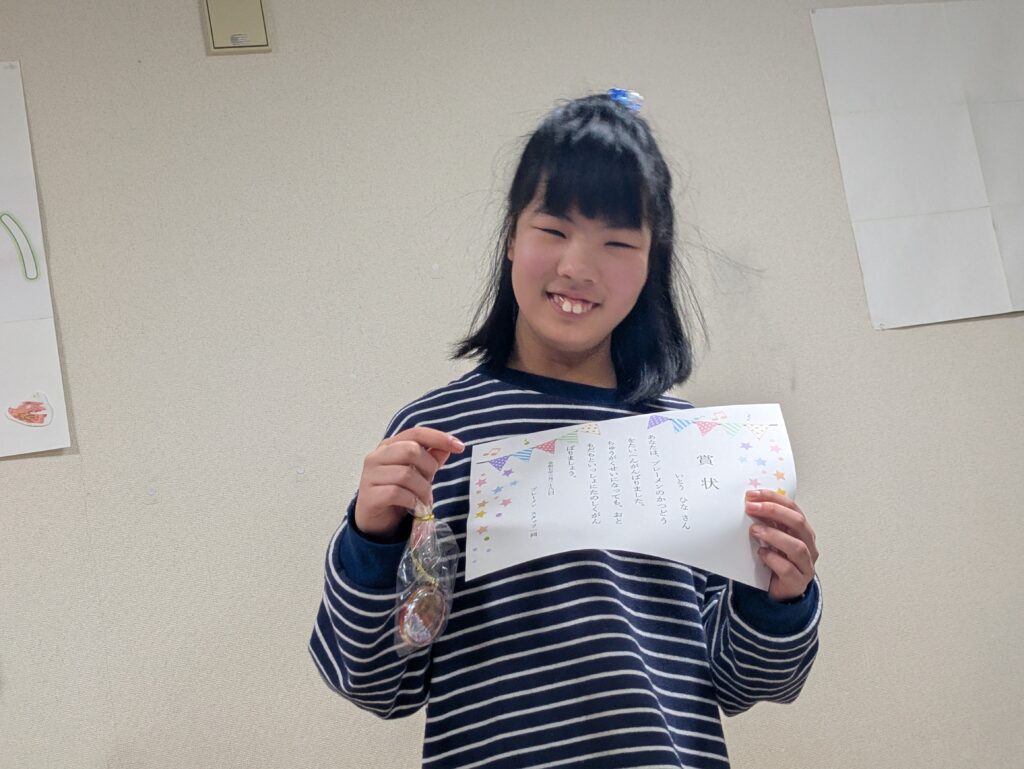 賞状
いとう ひな さん
あなたは、ブレーメンのかつどう
をたいへんがんばりました。
ちゅうがくせいになっても、おと
もだちといっしょにたのしくがん
ばりましょう。
ブレーメン スタッフ一同